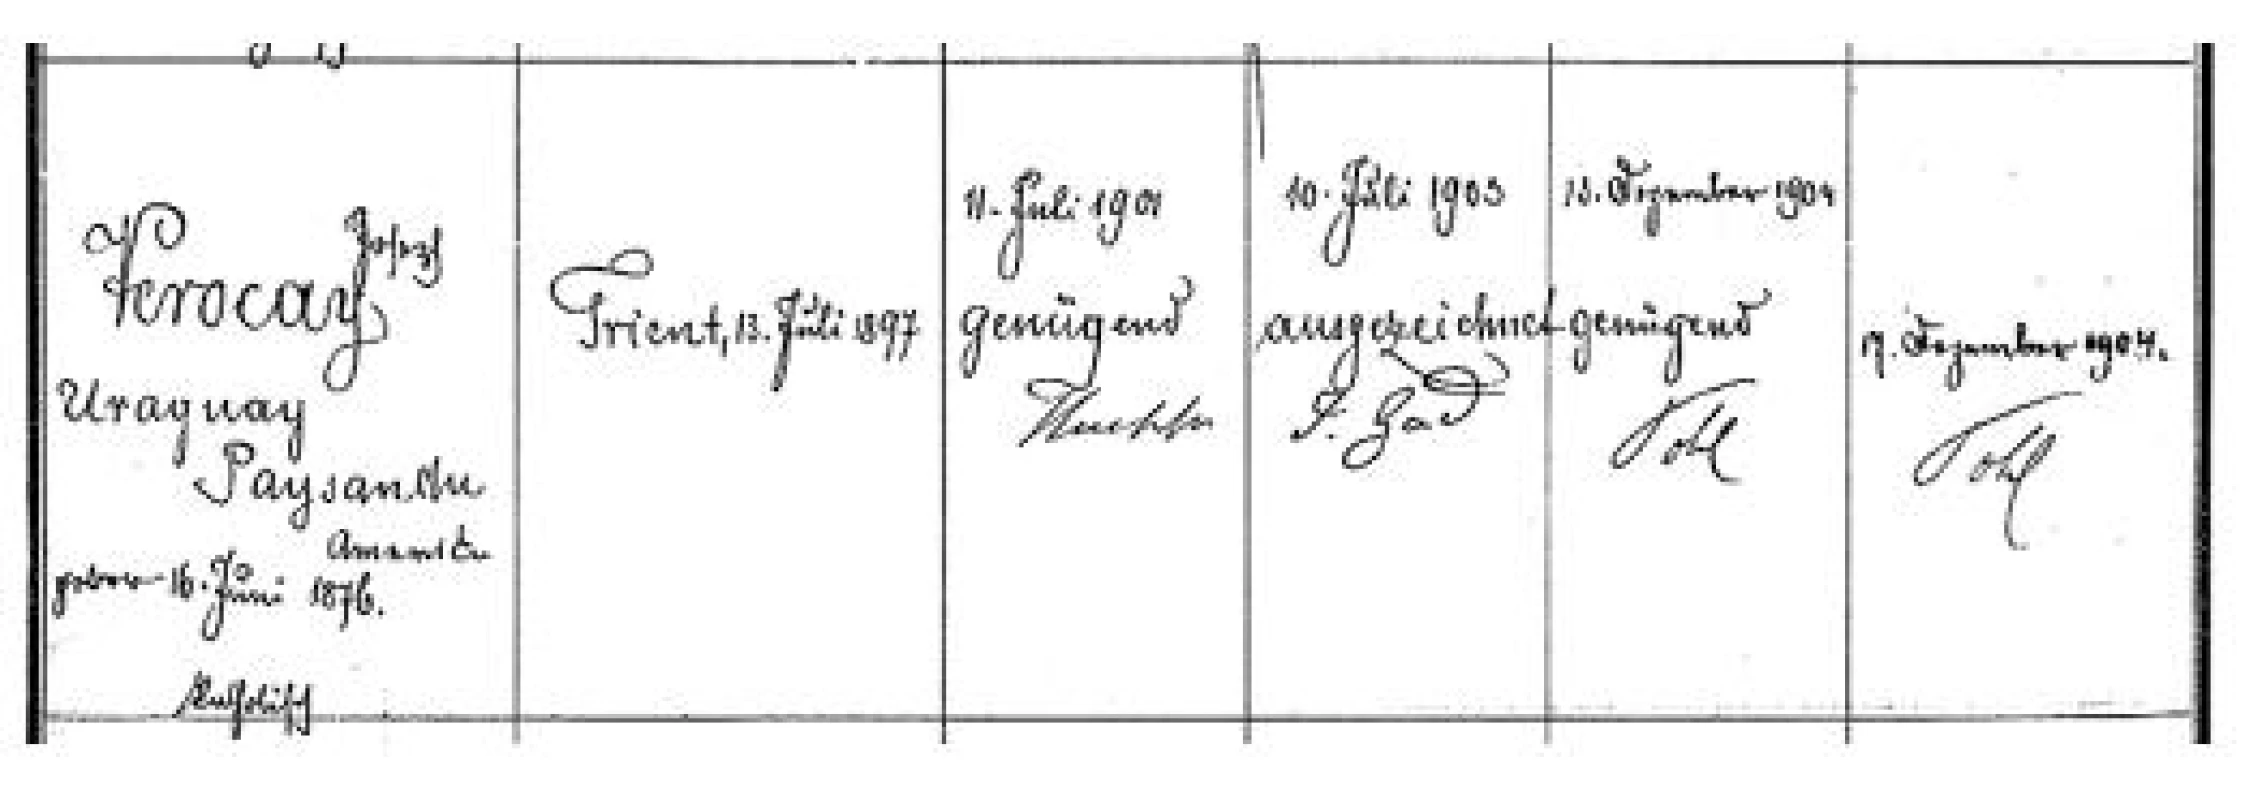 Verocay Josef
Uraguay
Paysandu
Amerika
geboren 16. Juni 1876.
katholisch
Trient, 13. Juli 1897
11. Juli 1901
genügend
10. Juli 1903
ausgezeichnet
13. Dezember 1904
genügend
Pohl
17. Dezember 1904.
Pohl